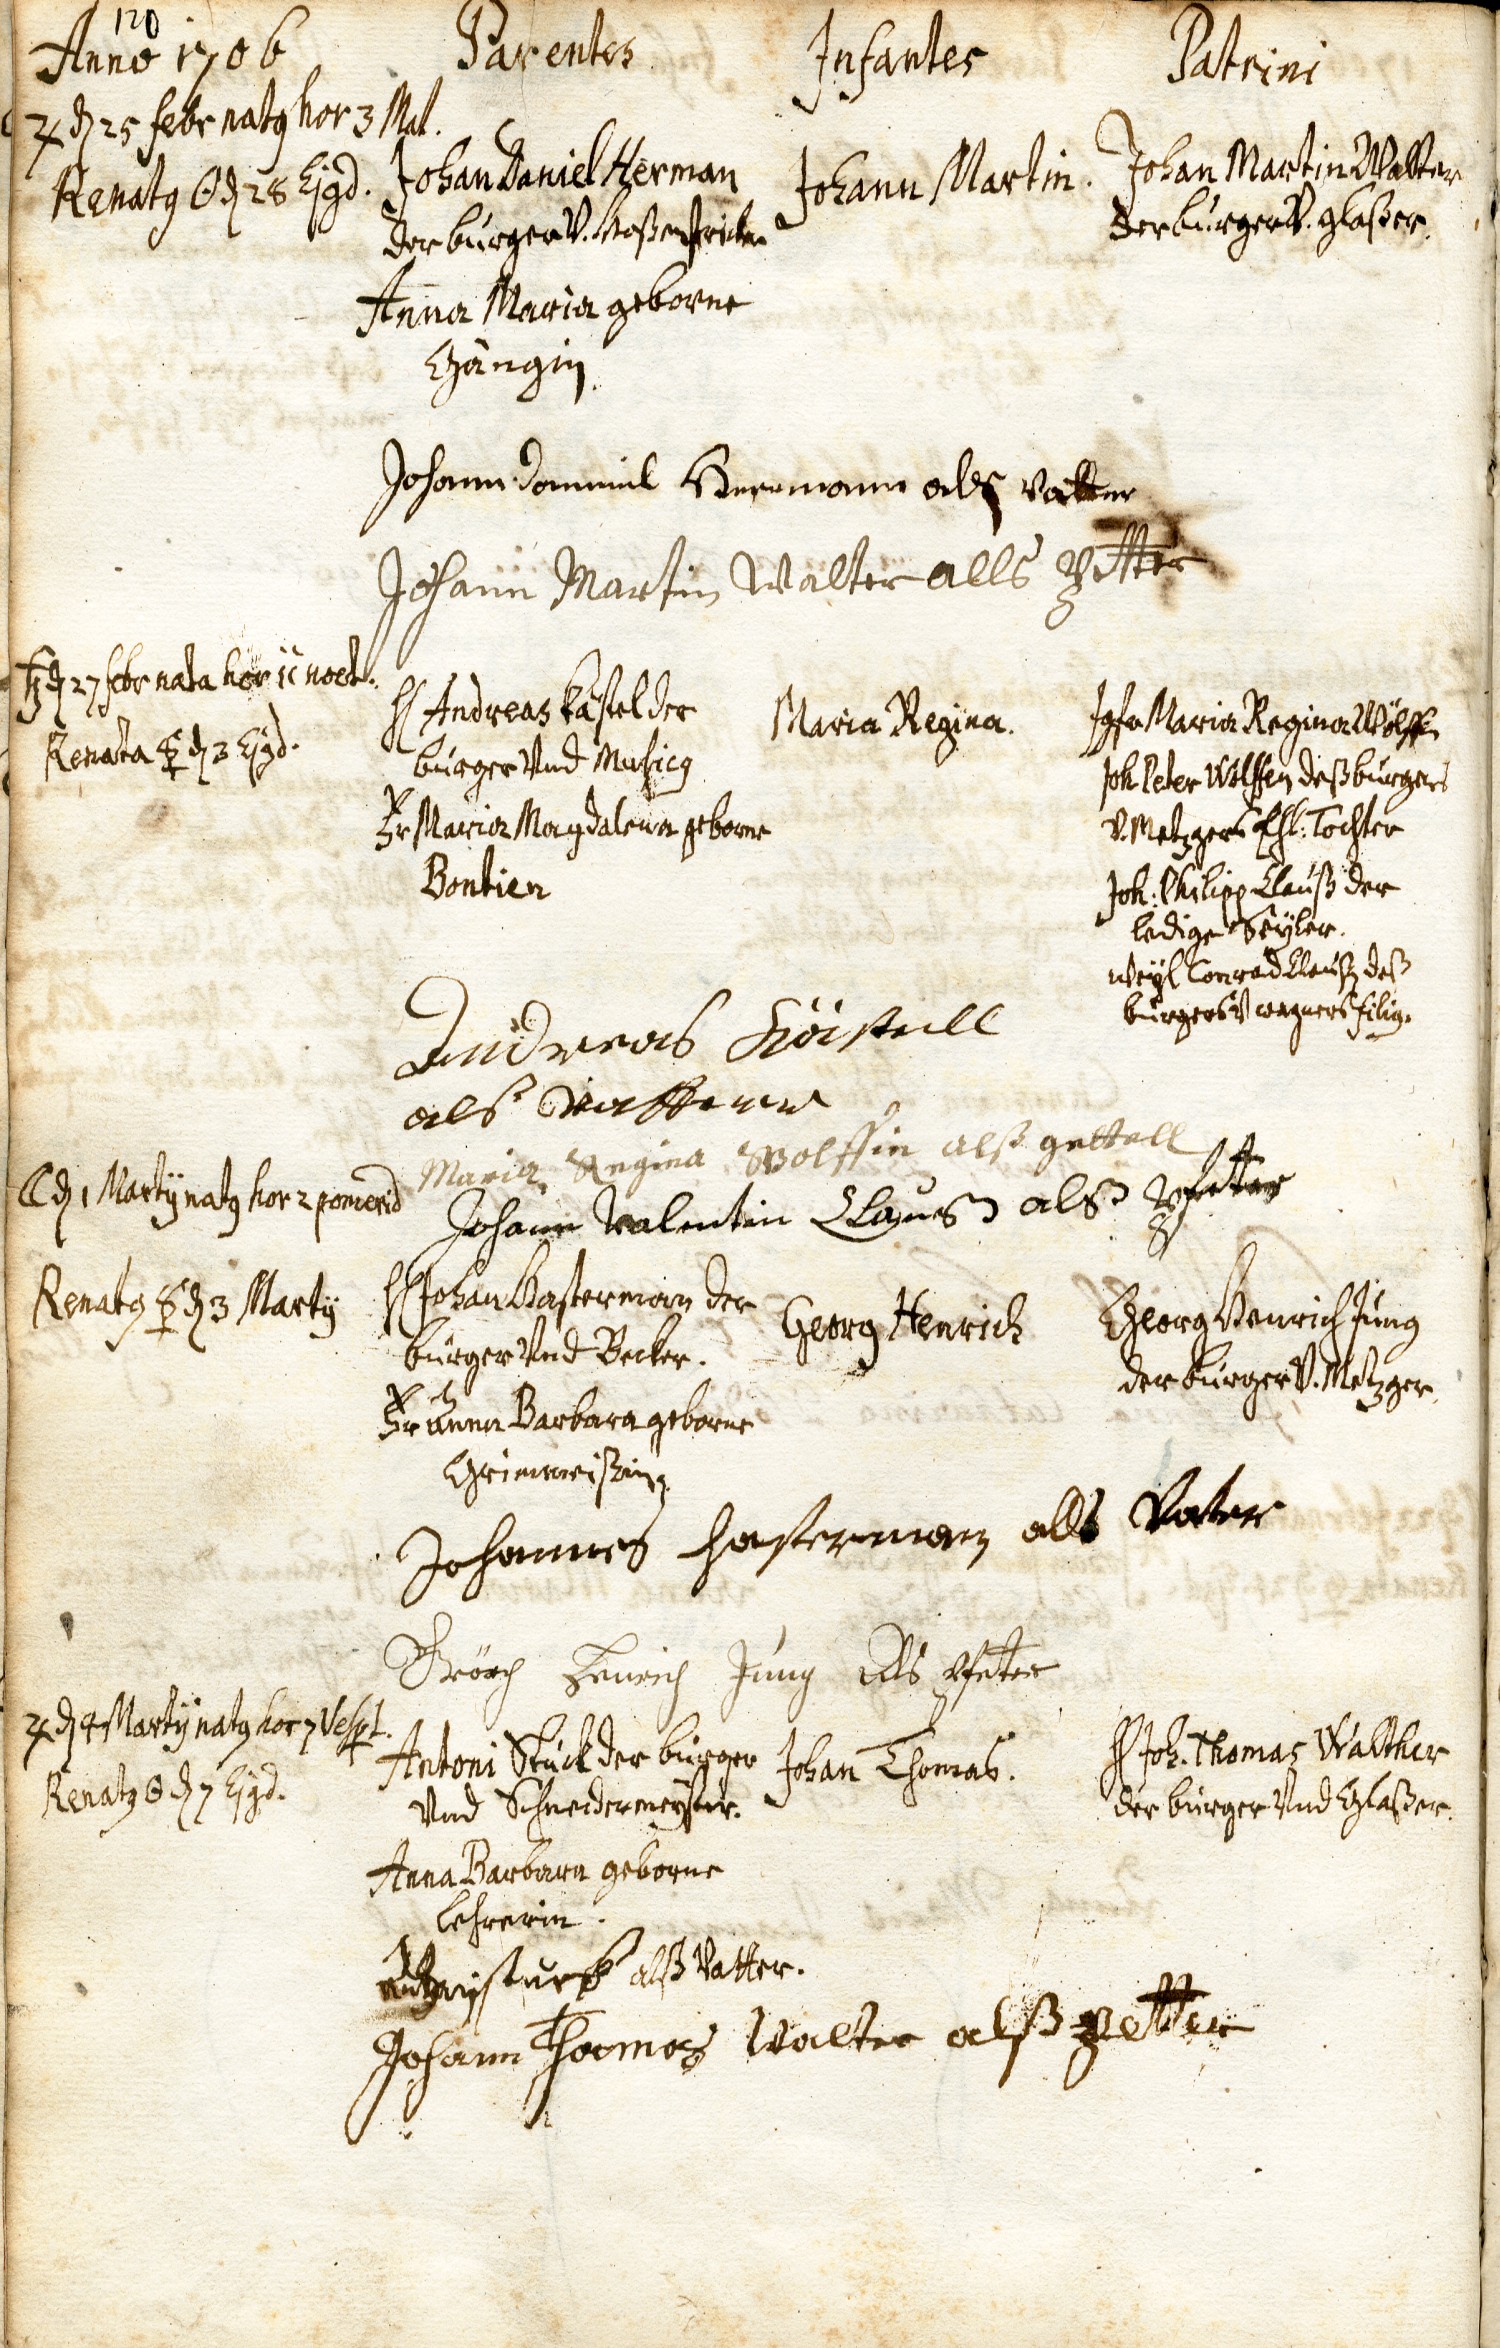 120
Anno 1706 Parentes Infantes Patrini
♃ d 25 febr natg hor 3 Mat.
Renatg ☉ d 28 Ejgd.
Johan Daniel Herman
der burger V. hoßenstricker
Anna Maria geborne
Gängin
Johann Martin.
Johan Martin Walter
der burger V. glaßer.
Johann Danniel Herrmann alß vatter
Johann Martin Walter alls Pfetter
♄ d 27 febr nata hor 11 noct.
Renata ☿ d 3 Ejgd.
H Andreas Kästel der
burger Vnd Musicg
Fr Maria Magdalena geborne
Bontien
Maria Regina.
Jgfr Maria Regina Wölffin
Joh Peter Wolffen deß burgers
V. Metzgers Ehl: Tochter
Joh: Philipp Clauß der
ledige Seÿler.
weÿl Conrad Clauß deß
burgers V wagners filig.
Andreas Kästell
als Vatter
Maria Regina Wolffin alß gettell
Johann Valentin Clauß alß Pfetter
☾ d 1 Martÿ natg hor 2 pomerid
Renatg ☿ d 3 Martÿ
H Johan Hasterman der
burger Vnd Becker.
Fr Anna Barbara geborne
Grimmeißin
Georg Henrich
Georg Henrich Jung
der burger V. Metzger.
Johannes Hasterman alls Vater
Geörg Henrich Jung Als Pfeter
♃ d 4 Martÿ natg hor 7 Vespt.
Renatg ☉ d 7 Ejgd.
Antoni Stuck der burger
Vnd Schneidermeÿster.
Anna Barbara geborne
Lehrerin.
Johan Thomas.
H Joh. Thomas Walther
der burger Vnd Glaßer.
alß Vatter.
Johann Thomas Walter alß Petter